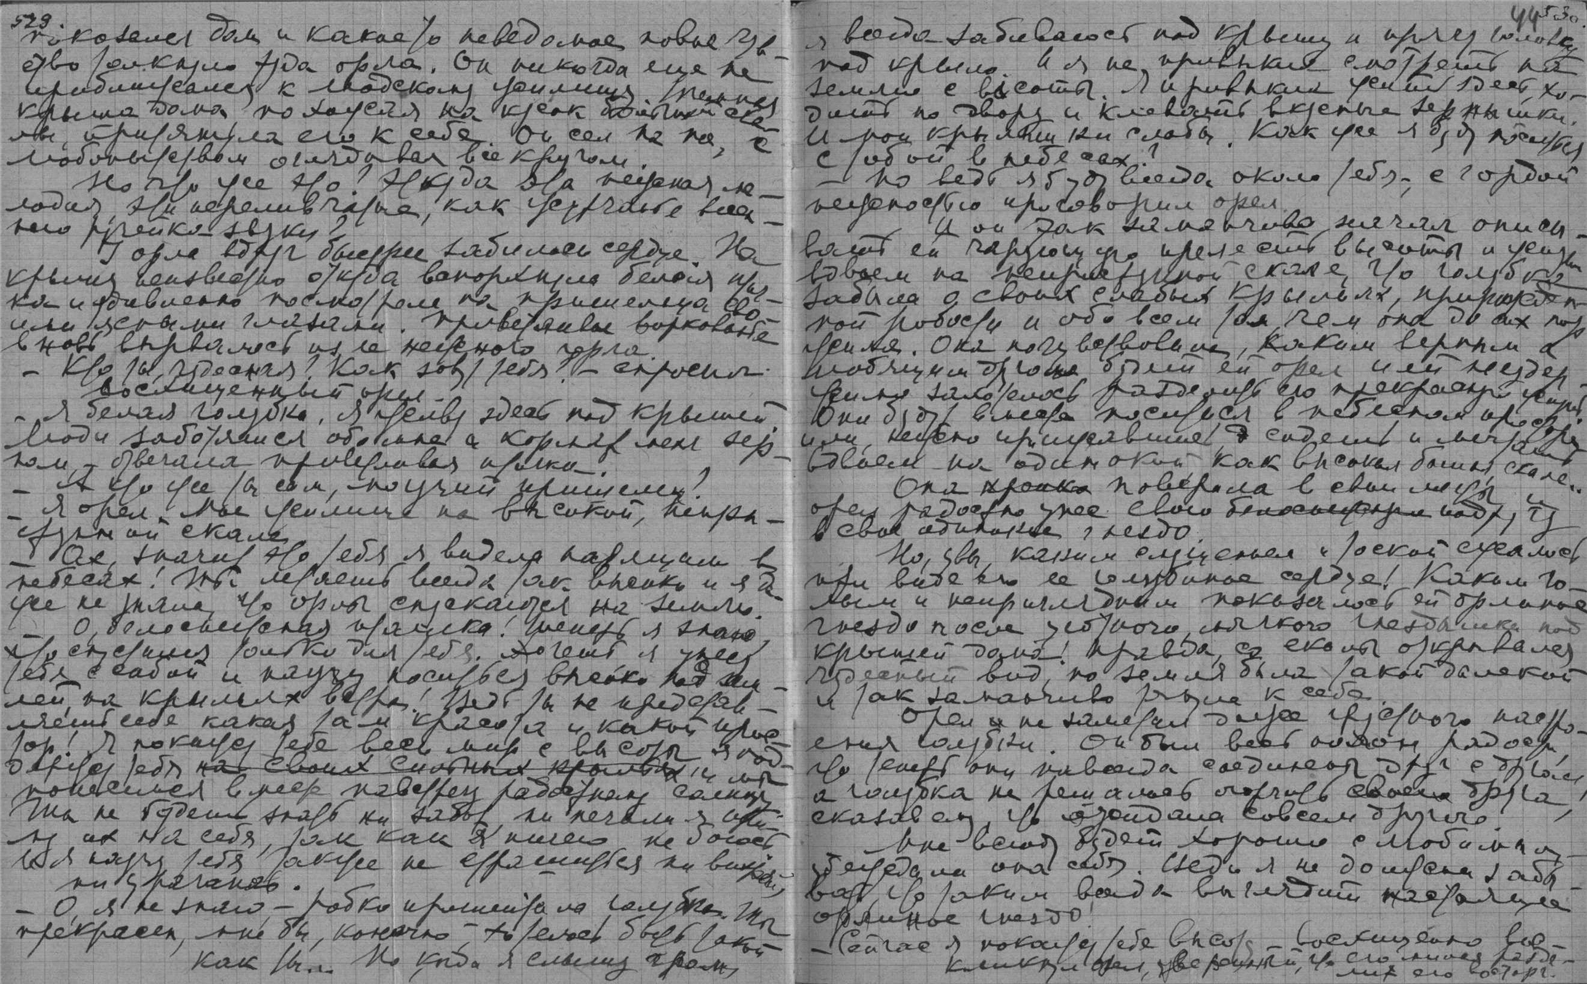 529.
показался дом и какое-то неведомое новое чув-
ство толкнуло туда орла. Он никогда еще не
приближался к людскому жилищу,
крыша дома похожая на кусок скa-
лы притянула его к себе. Он сел на нее, с
любопытством оглядывая все кругом.
Но что же это? Откуда эта нежная ме-
лодия, эти переливчатые, как журчанье весен-
него ручейка звуки?
У орла вдруг быстрее забилось сердце. На
крышу неизвестно откуда выпорхнула белая птич-
ка и удивленно посмотрела на пришельца
ясными глазами. Приветливое воркованье
вновь вырвалось из ее нежного горла.
- Кто ты, чудесная? Как зовут тебя? - спросил
восхищенный орел.
- Я белая голубка. Я живу здесь под крышей
Люди заботятся обо мне и кормят меня зер-
ном, - отвечала приветливая птичка.
- А кто же ты сам, могучий пришелец?
- Я орел. Мое жилище на высокой, непри-
ступной скале.
- Ах, значит это тебя я видела парящим в
небесах! Ты летаешь всегда так высоко и я да-
же не знала, что орлы спускаются на землю.
- О, белоснежная птичка! Теперь я знаю,
что спустился только для тебя. Хочешь я унесу
тебя с собой и научу носиться высоко над зем-
лей, на крыльях ветра! Ведь ты не представ-
ляешь себе какая там красота и какой прос-
тор! Я покажу тебе весь мир с высоты я под-
держу тебя на своих сильных крыльях, и мы
понесемся вместе навстречу радостному солнцу.
Ты не будешь знать ни забот ни печали я
их на себя, так как я ничего не боюсь
и я научу тебя также не страшиться ни
ни урагана.
- О, я не знаю, - робко прошептала голубка. Ты
прекрасен, мне бы, конечно, хотелось быть такой
как ты... Но когда я слышу гром,
44 530.
я всегда забиваюсь под крышу и прячу головку
под крыло. И я не привыкла смотреть на
землю с высоты. Я привыкла жить здесь, хо-
дить по двору и клевать вкусные зернышки.
И мои крылышки слабы. Как же я буду носиться
с тобой в небесах?
- Но ведь я буду всегда около тебя, - с гордой
нежностью проговорил орел.
И он так заманчиво начал описы-
вать ей чарующую прелесть высоты и жизни
вдвоем на неприступной скале, что голубка
забыла о своих слабых крыльях, прирожден-
ной робости и обо всем том, чем она до сих пор
жила. Она почувствовала, каким верным и
любящим другом будет ей орел и ей неудер-
жимо захотелось разделить его прекрасную жизнь.
Они будут вместе носиться в небесном просторе
или, нежно прижавшись, сидеть и мечтать
вдвоем на одинокой, как высокая башня, скале..
Она поверила в свои мечты и
орел радостно унес свою белоснежную подругу
в свое одинокое гнездо.
Но, увы, каким смущеньем и тоской сжалось
при виде его ее голубиное сердце! Каким го-
лым и неприглядным показалось ей орлиное
гнездо после уютного, мягкого гнездышка под
крышей дома! Правда, со скалы открывался
чудесный вид, но земля была такой далекой
и так заманчиво тянула к себе.
Орел и не заметил даже грустного настро-
ения голубки. Он был весь полон радости,
что теперь они навсегда соединены друг с другом
а голубка не решалась огорчить своего друга,
сказав ему, что ожидала совсем другого.
Мне всюду будет хорошо с любимым,
убеждала она себя. Ведь я не должна забы-
вать, что таким всегда выглядит настоящее
орлиное гнездо!
- Сейчас я покажу тебе высоту - восхищенно вос-
кликнул орел, уверенный, что его милая разде-
лит его восторг.